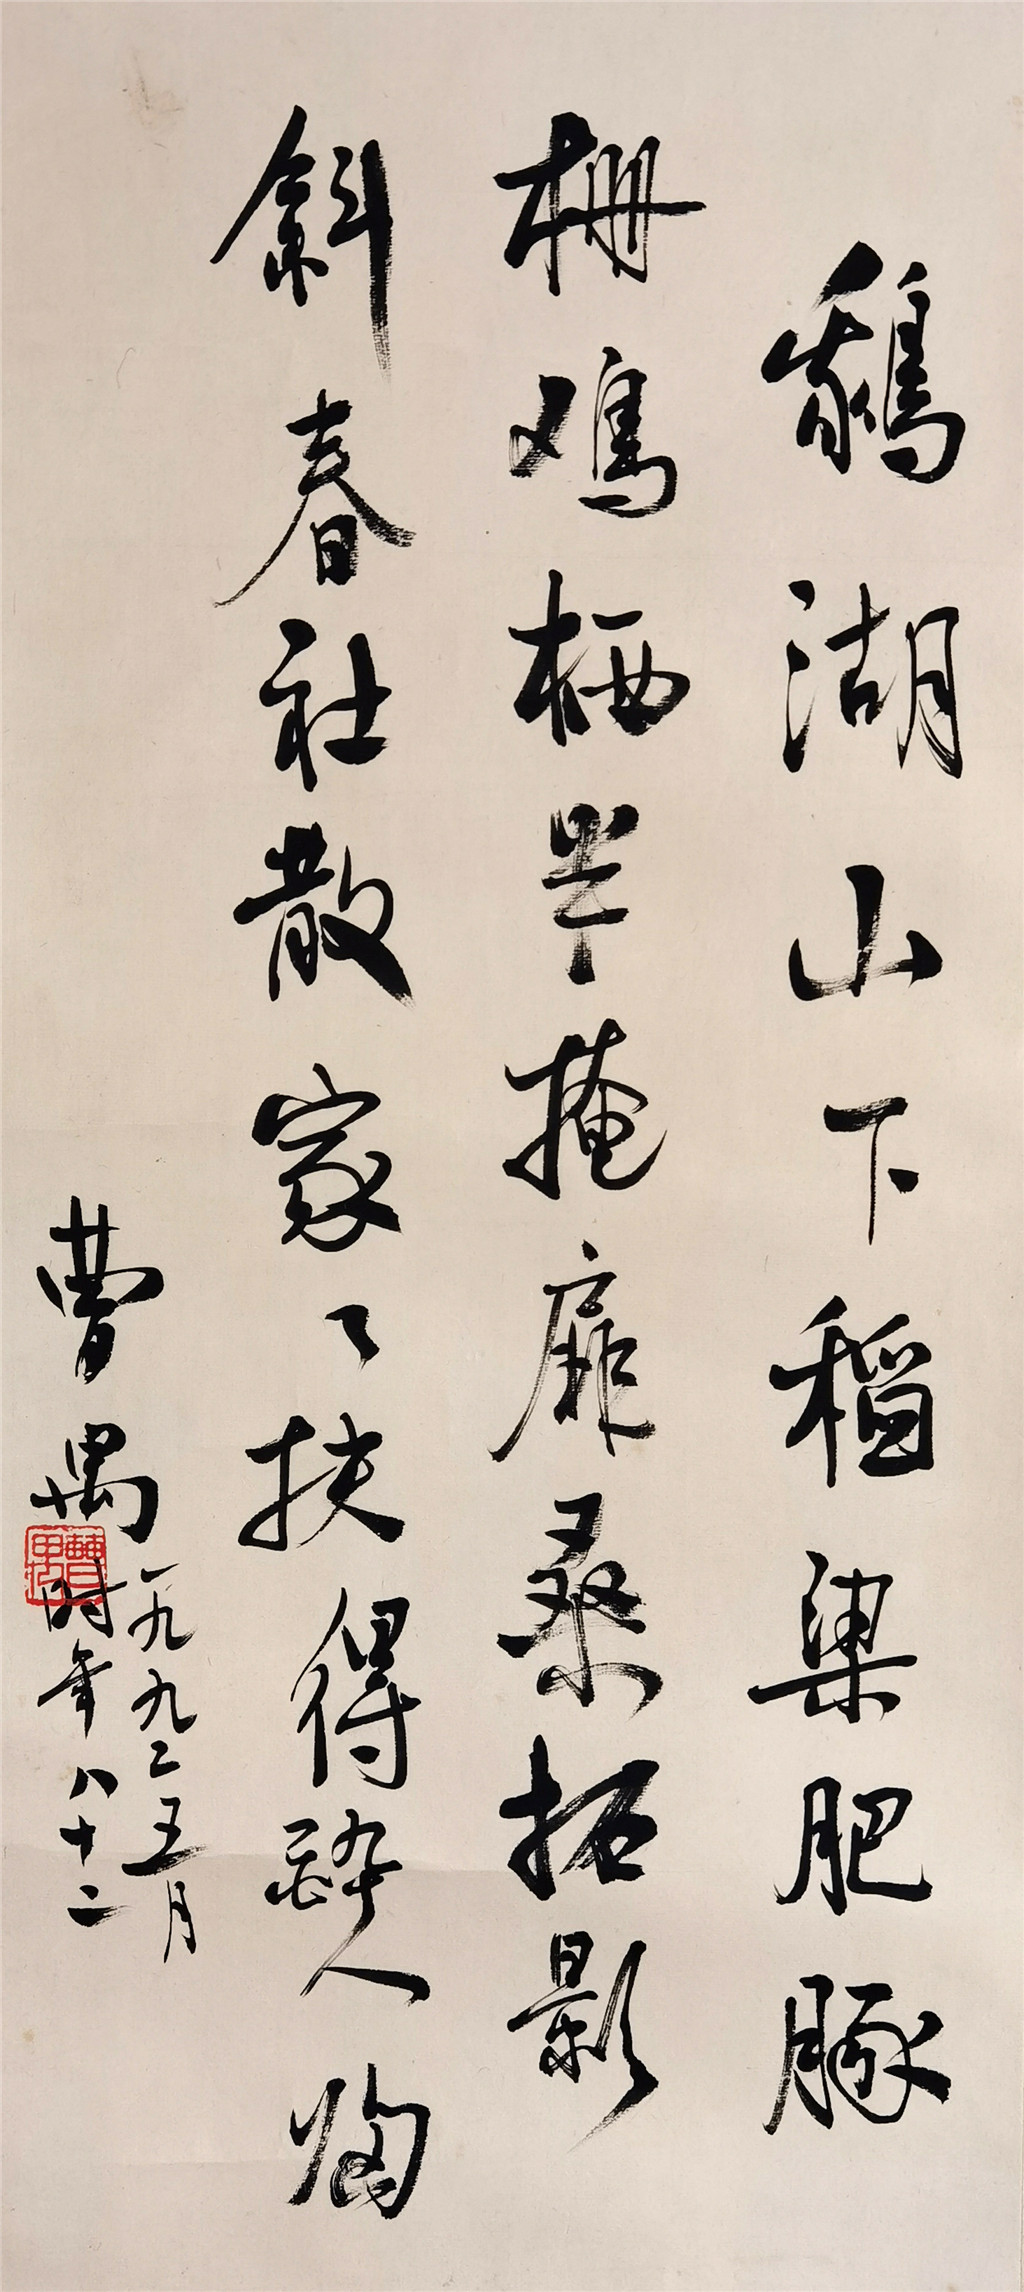 鹅湖山下稻粱肥豚
栅鸡栖半掩扉桑拓影
斜春社散家々扶得醉人归
曹禺
一九九二五月
时年八十二
曹禺